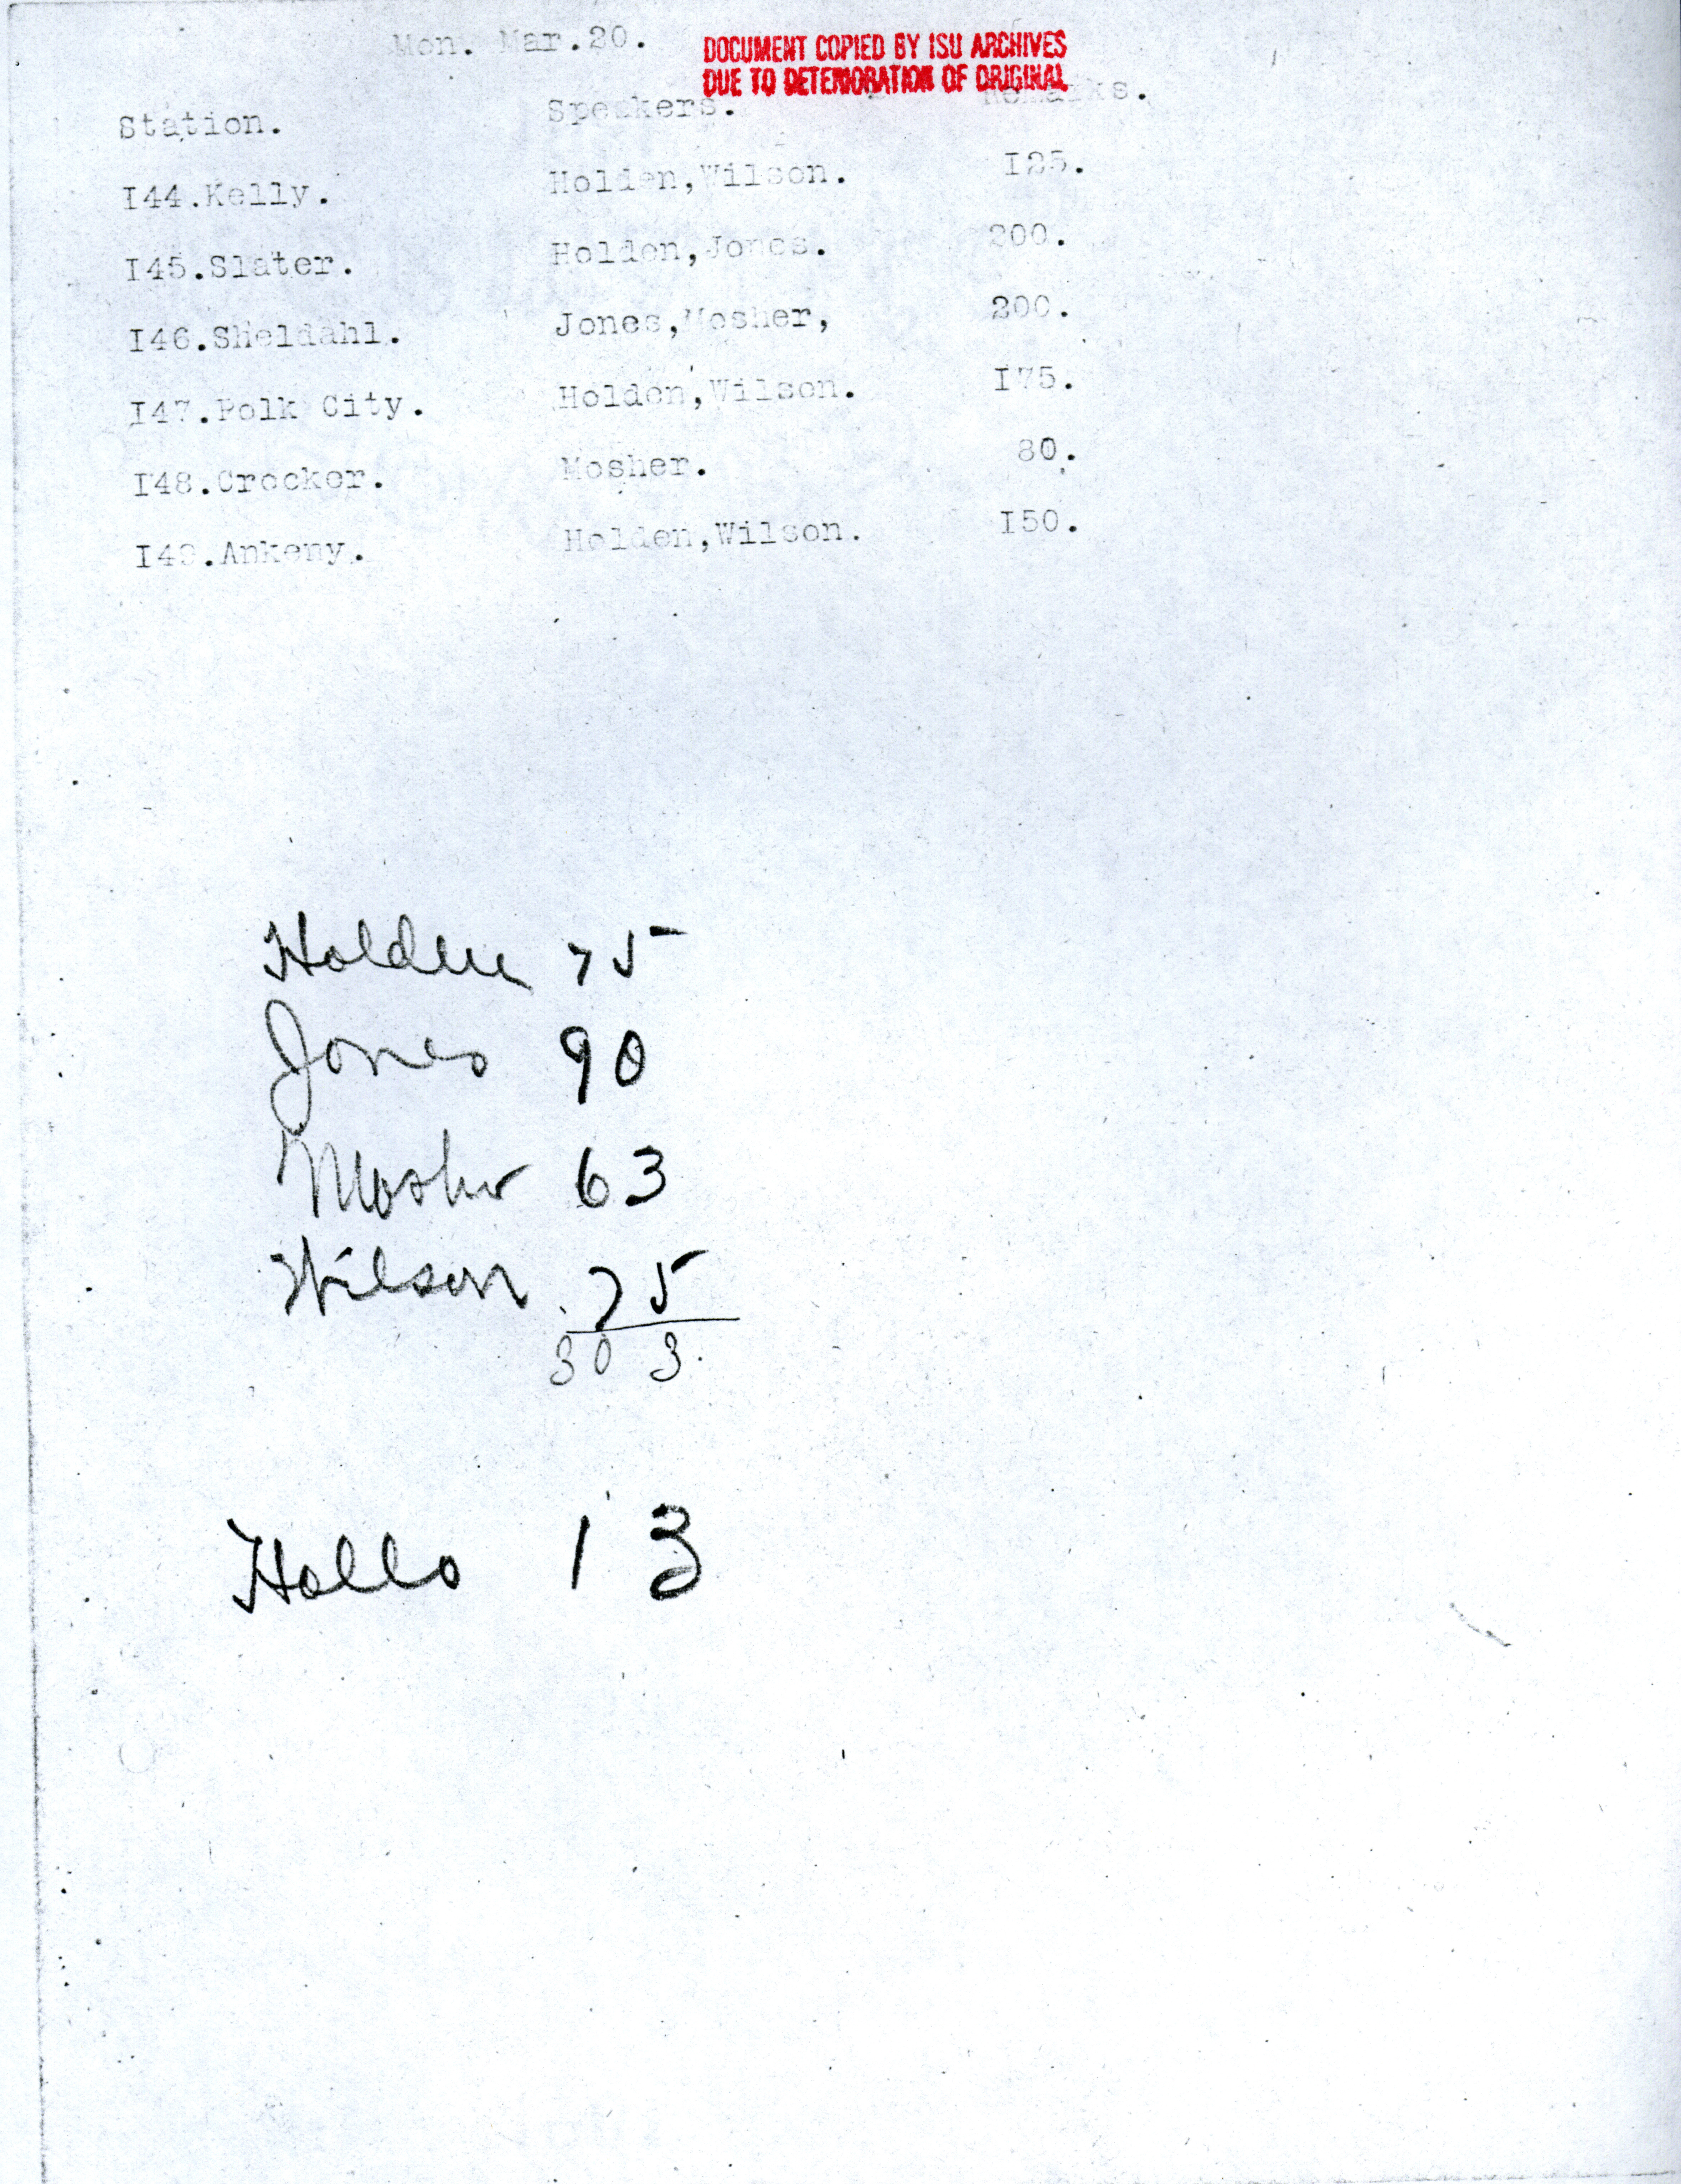 Mon. Mar.20.
DOCUMENT COPIED BY ISU ARCHIVES
DUE TO DETERIORATION OF ORIGINAL
Station. Speakers. Remarks.
I44.Kelly. Holden,Wilson. I25.
I45.Slater. Holden,Jones. 200.
I46.Sheldahl. Jones,Mosher, 200.
I47.Polk City. Holden,Wilson. I75.
I48.Crocker. Mosher. 80.
I49.Ankeny. Holden,Wilson. I50.
Holden 75
Jones 90
Mosher 63
Wilson 75
303
Hollo 13